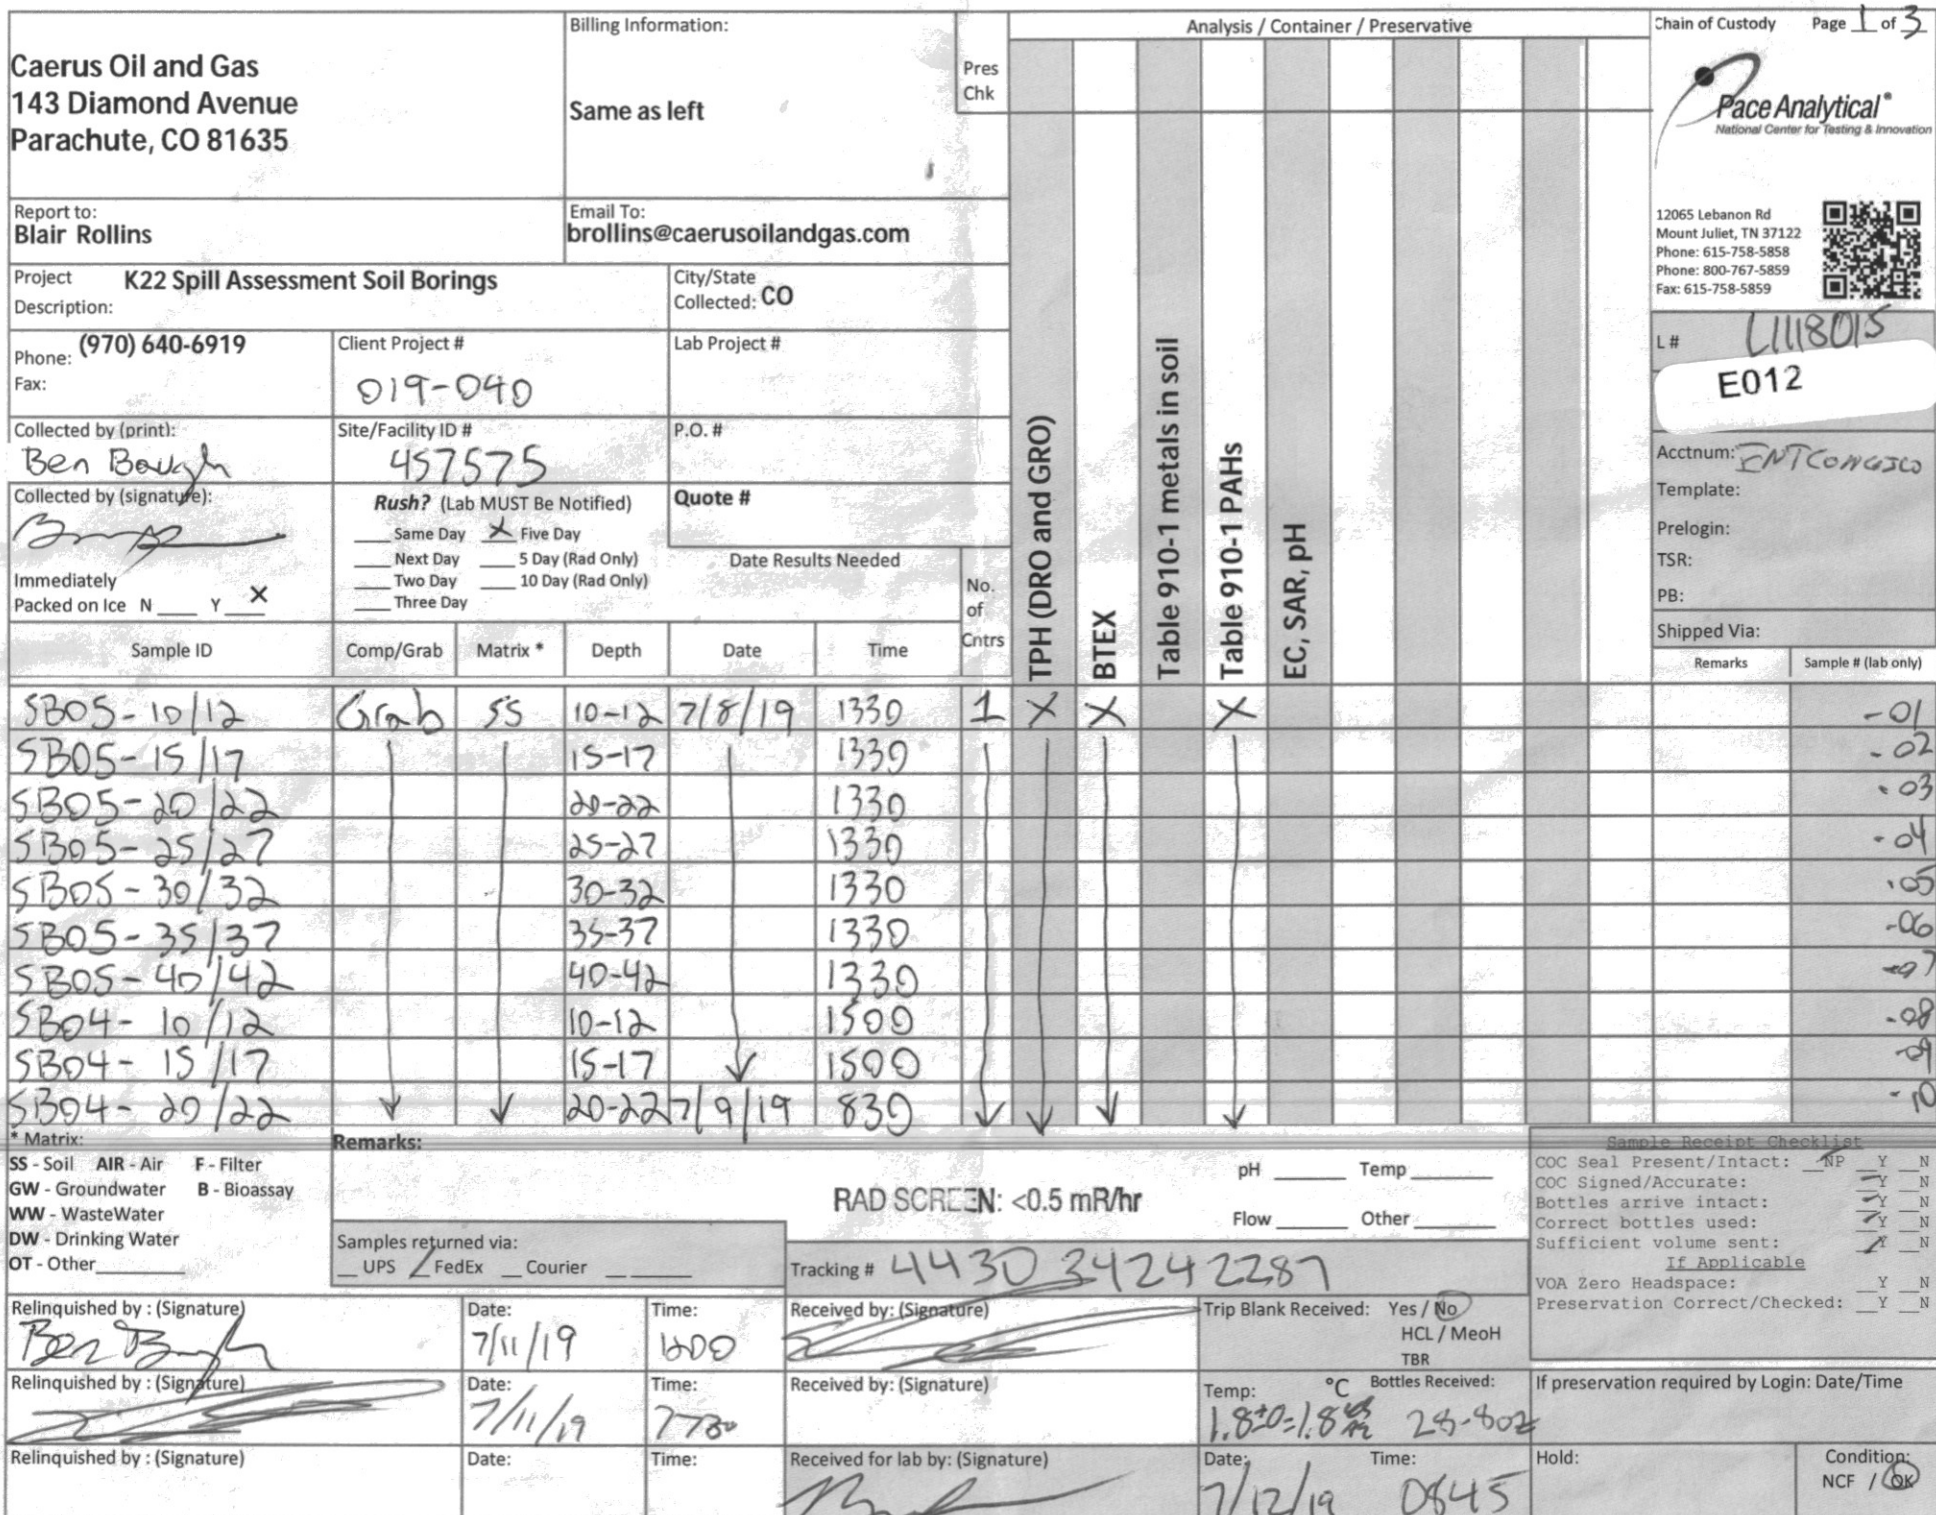 Caerus Oil and Gas
143 Diamond Avenue
Parachute, CO 81635
Billing Information:
Same as left
Pres
Chk
Analysis / Container / Preservative
Chain of Custody Page 1 of 3
Pace Analytical®
National Center for Testing & Innovation
12065 Lebanon Rd
Mount Juliet, TN 37122
Phone: 615-758-5858
Phone: 800-767-5859
Fax: 615-758-5859
Report to:
Blair Rollins
Email To:
brollins@caerusoilandgas.com
Project
Description:
K22 Spill Assessment Soil Borings
City/State
Collected: CO
Phone: (970) 640-6919
Fax:
Client Project #
019-040
Lab Project #
L# L1118015
E012
Collected by (print):
Ben Baugh
Site/Facility ID #
457575
P.O. #
Acctnum:
Template:
Prelogin:
TSR:
PB:
Shipped Via:
Collected by (signature):
Rush? (Lab MUST Be Notified)
Same Day X Five Day
Next Day 5 Day (Rad Only)
Two Day 10 Day (Rad Only)
Three Day
Quote #
Date Results Needed
Immediately
Packed on Ice N Y X
No.
of
Cntrs
TPH (DRO and GRO)
BTEX
Table 910-1 metals in soil
Table 910-1 PAHs
EC, SAR, pH
Sample ID Comp/Grab Matrix * Depth Date Time Remarks Sample # (lab only)
SB05-10/12 Grab SS 10-12 7/8/19 1330 1 X X X -01
SB05-15/17 15-17 1330 -02
SB05-20/22 20-22 1330 -03
SB05-25/27 25-27 1330 -04
SB05-30/32 30-32 1330 -05
SB05-35/37 35-37 1330 -06
SB05-40/42 40-42 1330 -07
SB04-10/12 10-12 1500 -08
SB04-15/17 15-17 1500 -09
SB04-20/22 20-22 7/9/19 830 -10
* Matrix:
SS - Soil AIR - Air F - Filter
GW - Groundwater B - Bioassay
WW - WasteWater
DW - Drinking Water
OT - Other
Remarks:
RAD SCREEN: <0.5 mR/hr
pH Temp
Flow Other
Samples returned via:
UPS FedEx Courier
Tracking # 4430 3424 2287
Sample Receipt Checklist
COC Seal Present/Intact: NP Y N
COC Signed/Accurate: Y N
Bottles arrive intact: Y N
Correct bottles used: Y N
Sufficient volume sent: Y N
If Applicable
VOA Zero Headspace: Y N
Preservation Correct/Checked: Y N
Relinquished by : (Signature)
Ben Baugh
Date:
7/11/19
Time:
1200
Received by: (Signature)
Trip Blank Received: Yes / No
HCL / MeoH
TBR
Relinquished by : (Signature)
Date:
7/11/19
Time:
Received by: (Signature)
Temp: °C
1.8±0=1.8
Bottles Received:
28-8oz
If preservation required by Login: Date/Time
Relinquished by : (Signature)
Date:
Time:
Received for lab by: (Signature)
Date:
7/12/19
Time:
0845
Hold:
Condition:
NCF / OK